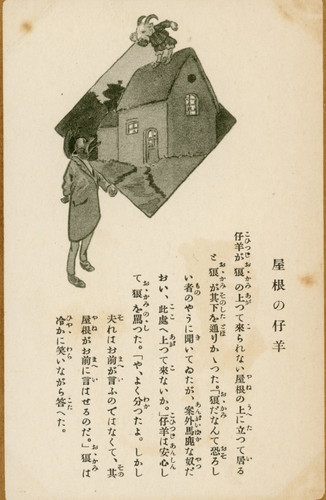 屋根の仔羊
仔羊が狼の上つて来られない屋根の上に立つて居る
と狼が其下を通りかゝつた。「狼だなんて恐ろし
い者のやうに聞いてゐたが、案外馬鹿な奴だ
おい、此處へ上つて来ないか。」仔羊は安心し
て狼を罵つた。「や、よく分つたよ。しかし
夫れはお前が言ふのではなくて、其
屋根がお前に言はせるのだ。」狼は
冷かに笑いながら答へた。